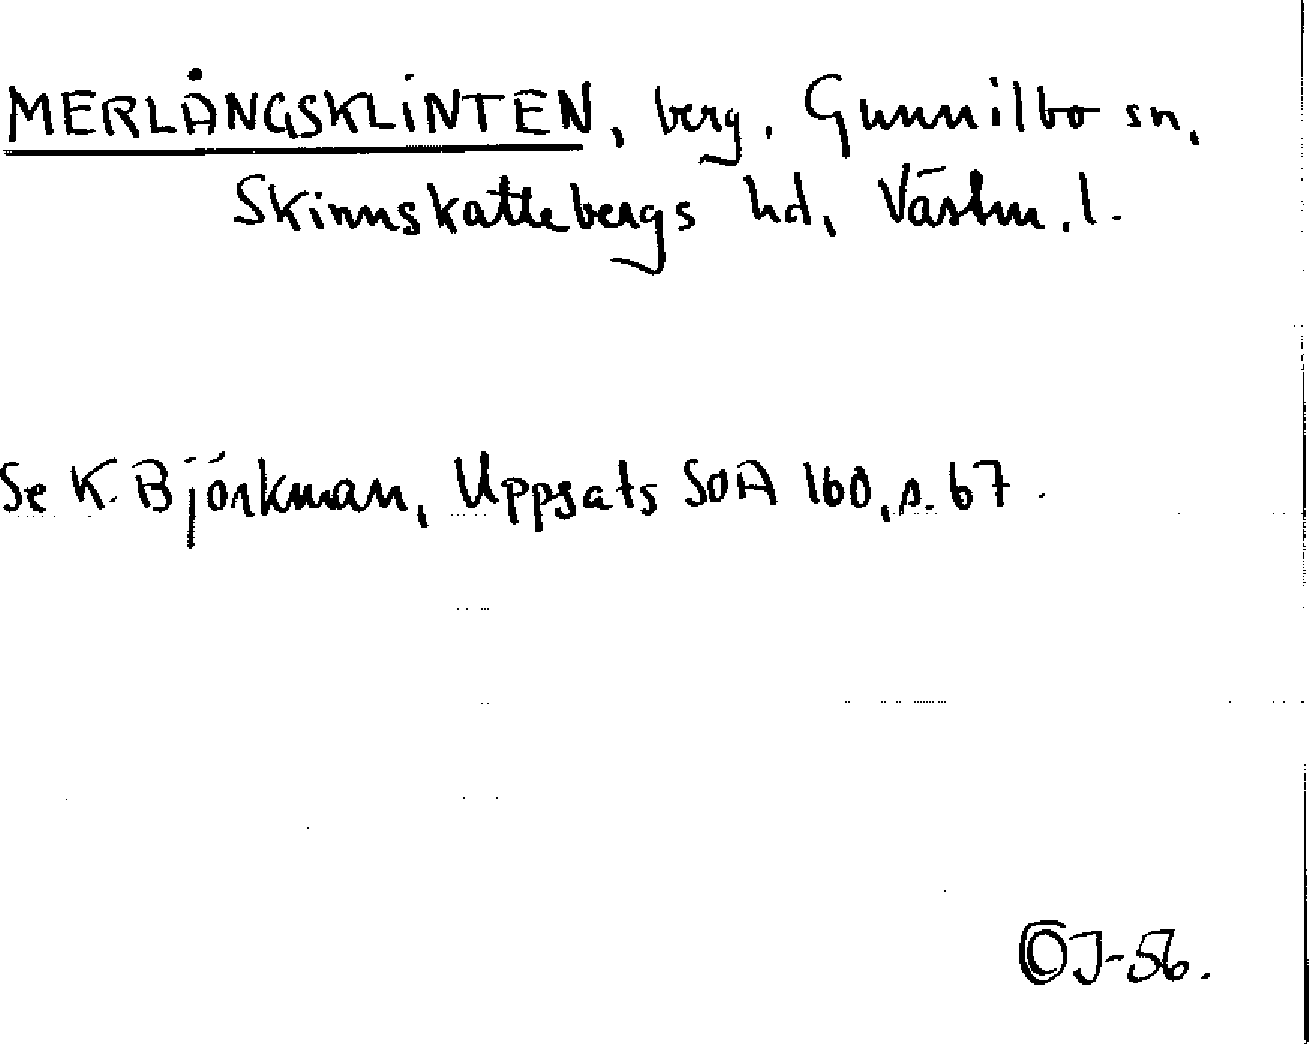 MERLÅNGSKLINTEN, berg, Gunnilbo sn,
Skinnskattebergs hd, Västm. l.
Se K. Björkman, Uppsats SOA 160, s. 67.
OJ-56.